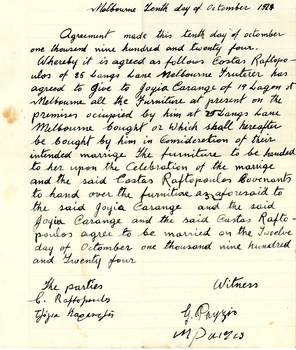 Melbourne Tenth day of Octomber 1924
Agreement made this tenth day of octomber
one thousand nine hundred and twenty four.
Whereby it is agreed as follows Costas Raftopo-
ulos of 25 Langs Lane Melbourne Fruterer has
agreed to Give to Joyia Carange of 19 Lagon st
Melbourne all the Furniture at present on the
premises occupied by him at 25 Langs Lane
Melbourne bought or Which shall hereafter
be bought by him in Consideretion of their
intended marrige The furniture to be handed
to her upon the Celebration of the marige
and the said Costas Raftopoulos Covenants
to hand over the furnitiure as aforesaid to
the said Joyia Carange and the said
Joyia Carange and the said Costas Rafto-
poulos agree to be married on the Twelve
day of Octomber one thousand nine hundred
and Twenty four
The parties Witness
C. Raftopoulos